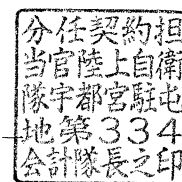 分任契約担
当官陸上自衛
隊宇都宮駐屯
地第334
会計隊長之印